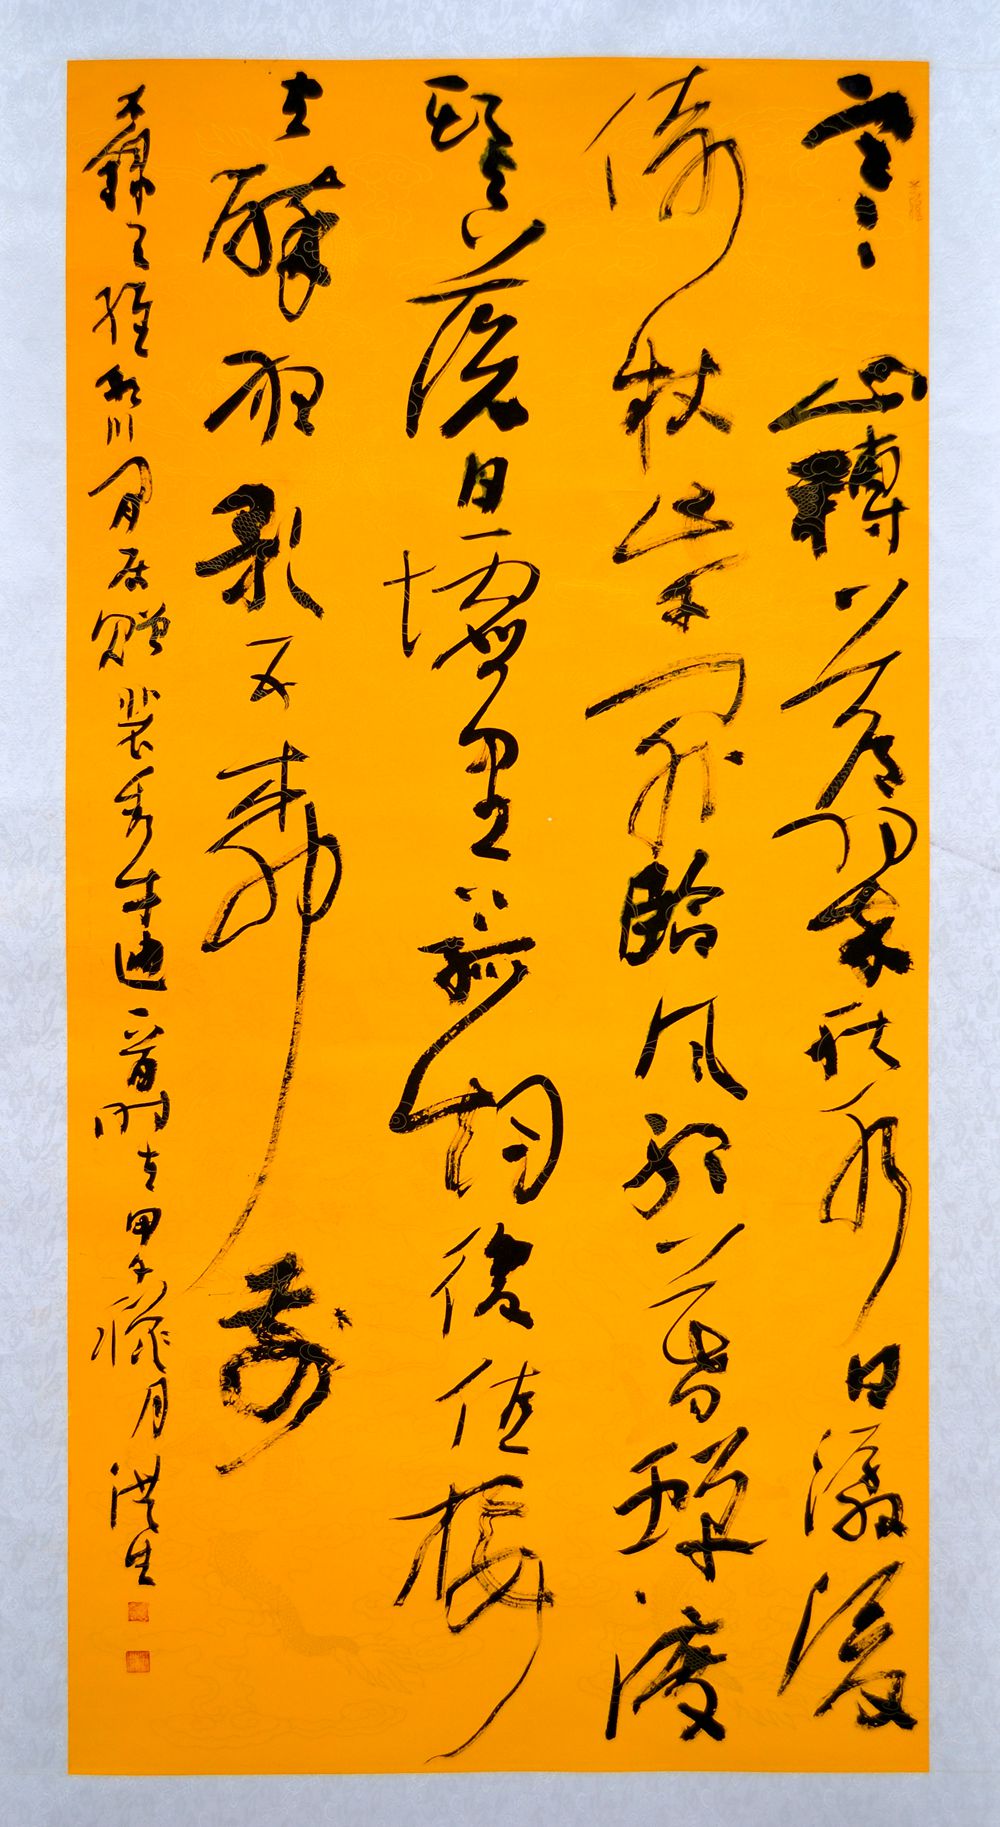 寒山轉蒼翠秋水日潺湲
倚杖柴門外臨風聽暮蟬渡
頭余落日墟里上孤烟復值接
輿醉狂歌五柳前
王維輞川閒居贈裴秀才迪一首時在甲午臘月洪生